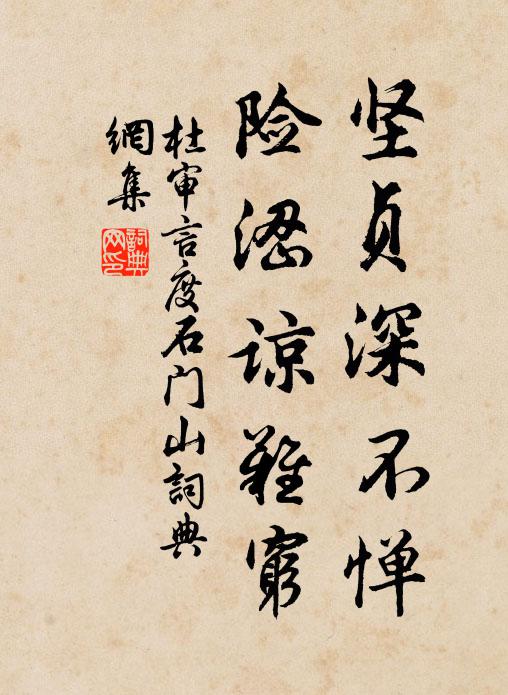 坚贞深不惮
险涩谅难穷
杜审言度石门山词典
網集
詞典
网印